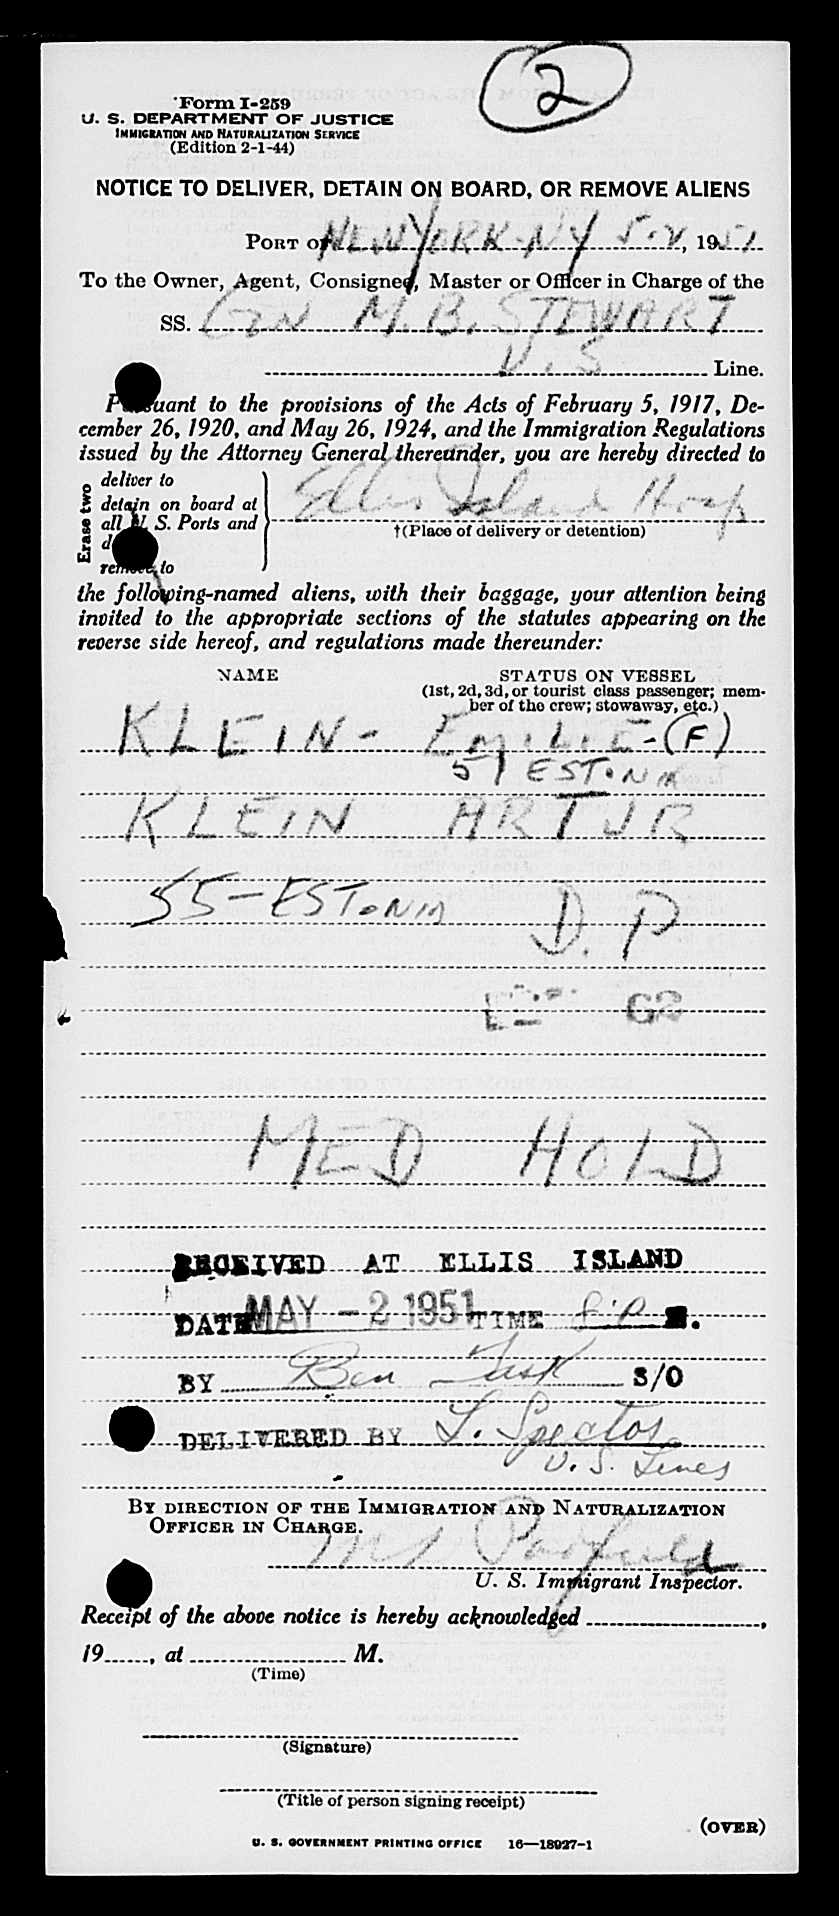 2
Form I-259
U. S. DEPARTMENT OF JUSTICE
IMMIGRATION AND NATURALIZATION SERVICE
(Edition 2-1-44)
NOTICE TO DELIVER, DETAIN ON BOARD, OR REMOVE ALIENS
PORT OF NEW YORK-NY 5-2, 1951
To the Owner, Agent, Consignee, Master or Officer in Charge of the
SS. GEN M. B. STEWART
U. S Line.
Pursuant to the provisions of the Acts of February 5, 1917, De-
cember 26, 1920, and May 26, 1924, and the Immigration Regulations
issued by the Attorney General thereunder, you are hereby directed to
Erase two
deliver to
detain on board at
all U. S. Ports and
remove to
Ellis Island Hosp
†(Place of delivery or detention)
the following-named aliens, with their baggage, your attention being
invited to the appropriate sections of the statutes appearing on the
reverse side hereof, and regulations made thereunder:
NAME STATUS ON VESSEL
(1st, 2d, 3d, or tourist class passenger; mem-
ber of the crew; stowaway, etc.)
KLEIN - EMILIE-(F)
51 ESTONIA
KLEIN ARTUR
55-ESTONIA D. P
G2
MED HOLD
RECEIVED AT ELLIS ISLAND
DATE MAY -2 1951 TIME 8:P M.
BY Ben S/O
DELIVERED BY L. Spector
U. S. Lines
BY DIRECTION OF THE IMMIGRATION AND NATURALIZATION
OFFICER IN CHARGE.
U. S. Immigrant Inspector.
Receipt of the above notice is hereby acknowledged ,
19 , at M.
(Time)
(Signature)
(Title of person signing receipt)
(OVER)
U. S. GOVERNMENT PRINTING OFFICE 16—18927-1